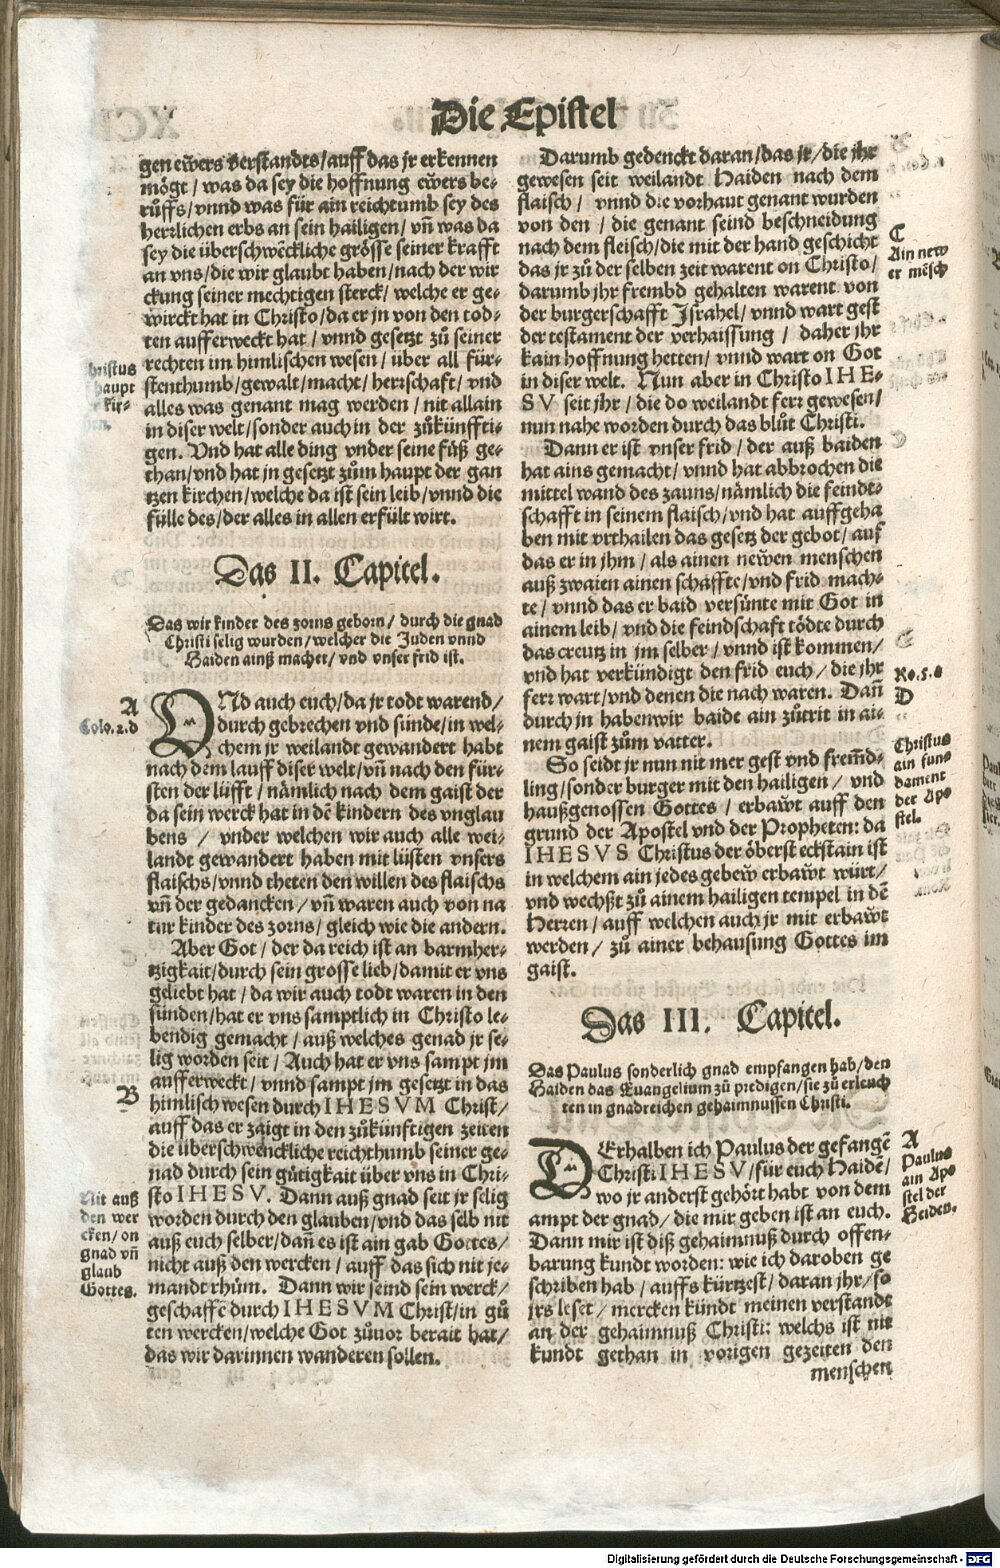 Die Epistel
gen ewers verstandts/auff das jr erkennen
mögt / was da sey die hoffnung ewers be-
růffs/vnnd was für ain reichtumb sey des
herzlichen erbs an sein hailigen/ vñ was da
sey die überschwēckliche grösse seiner krafft
an vns/die wir glaubt haben/nach der wir
ckung seiner mechtigen sterck/ welche er ge-
wirckt hat in Christo/da er jn von den tod-
ten aufferweckt hat / vnnd gesetzt zů seiner
rechten im himlischen wesen/ über all für-
stenthumb/gewalt/macht/ herrschaft/ vnd
alles was genant mag werden / nit allain
in diser welt/sonder auch in der zůkünffti-
gen. Vnd hat alle ding vnder seine fůß ge-
than/vnd hat jn gesetzt zům haupt der gan
tzen kirchen/welche da ist sein leib/vnnd die
fülle des/der alles in allen erfült wirt.
hristus
haupt
kir-
Das II. Capitel.
Das wir kinder des zorns geborn/ durch die gnad
Christi selig wurden/welcher die Juden vnnd
Haiden ainß machet/ vnd vnser frid ist.
A
Colo.2.d
VNd auch euch/da jr todt warend/
durch gebrechen vnd sünde/in wel-
chem jr weilandt gewandert habt
nach dem lauff diser welt/vñ nach den für-
sten der lüfft/ nämlich nach dem gaist der
da sein werck hat in dē kindern des vnglau
bens / vnder welchen wir auch alle wei-
landt gewandert haben mit lüsten vnsers
flaischs/vnnd theten den willen des flaischs
vñ der gedancken/ vñ waren auch von na
tur kinder des zorns/ gleich wie die andern.
Aber Got / der da reich ist an barmher-
tzigkait/durch sein grosse lieb/damit er vns
geliebt hat / da wir auch todt waren in den
sünden/hat er vns samptlich in Christo le-
bendig gemacht/ auß welches genad jr se-
lig worden seit/ Auch hat er vns sampt jm
aufferweckt/ vnnd sampt jm gesetzt in das
himlisch wesen durch IHESVM Christ/
auff das er zaigt in den zůkünftigen zeiten
die überschwenckliche reichthumb seiner ge-
nad durch sein gütigkait über vns in Chri-
sto IHESV. Dann auß gnad seit jr selig
worden durch den glauben/vnd das selb nit
auß euch selber/dañ es ist ain gab Gottes/
nicht auß den wercken / auff das sich nit je-
mandt rhům. Dann wir seind sein werck/
geschaffē durch IHESVM Christ/in gů
ten wercken/welche Got zůuor berait hat/
das wir darinnen wanderen sollen.
B
Nit auß
den wer
cken/on
gnad vñ
glaub
Gottes.
Darumb gedenckt daran/das jr/die jhr
gewesen seit weilandt Haiden nach dem
flaisch / vnnd die vorhaut genant wurden
von den / die genant seind beschneidung
nach dem fleisch/die mit der hand geschicht
das jr zů der selben zeit warent on Christo/
darumb jhr frembd gehalten warent von
der burgerschafft Jsrahel/ vnnd wart gest
der testament der verhaissung / daher jhr
kain hoffnung hetten/ vnnd wart on Got
in diser welt. Nun aber in Christo IHE-
SV seit jhr / die do weilandt ferr gewesen/
nun nahe worden durch das blůt Christi.
Dann er ist vnser frid / der auß baiden
hat ains gemacht/ vnnd hat abbrochen die
mittel wand des zauns/nämlich die feindt-
schafft in seinem flaisch/vnd hat auffgeha
ben mit vrthailen das gesetz der gebot/ auf
das er in jhm / als ainen newen menschen
auß zwaien ainen schaffte/vnd frid mach-
te / vnnd das er baid versünte mit Got in
ainem leib/ vnd die feindschaft tödte durch
das creutz in jm selber/ vnnd ist kommen/
vnd hat verkündigt den frid euch/ die jhr
ferr wart/vnd denen die nach waren. Dañ
durch jn haben wir baide ain zůtrit in ai-
nem gaist zům vatter.
So seidt jr nun nit mer gest vnd fremd-
ling/sonder burger mit den hailigen / vnd
haußgenossen Gottes / erbawt auff den
grund der Apostel vnd der Propheten: da
IHESVS Christus der öberst eckstain ist
in welchem ain jedes gebew erbawt würt/
vnd wechßt zů ainem hailigen tempel in dē
Herren/ auff welchen auch jr mit erbawt
werden / zů ainer behausung Gottes im
gaist.
C
Ain new
er mēsch
Ro.5.a
D
Christus
ain fun-
dament
der Apo
stel.
Das III. Capitel.
Das Paulus sonderlich gnad empfangen hab/den
Haiden das Euangelium zů predigen/sie zů erleuch
ten in gnadreichen gehaimnussen Christi.
DErhalben ich Paulus der gefangē
Christi IHESV/für euch Haidē/
wo jr anderst gehört habt von dem
ampt der gnad/ die mir geben ist an euch.
Dann mir ist diß gehaimnuß durch offen-
barung kundt worden: wie ich daroben ge
schriben hab / auffs kürtzest/ daran jhr/so
jrs leset / mercken kündt meinen verstandt
an der gehaimnuß Christi: welchs ist nit
kundt gethan in vorigen gezeiten den
menschen
A
Paulus
ain Apo
stel der
Heiden.
Digitalisierung gefördert durch die Deutsche Forschungsgemeinschaft - DFG